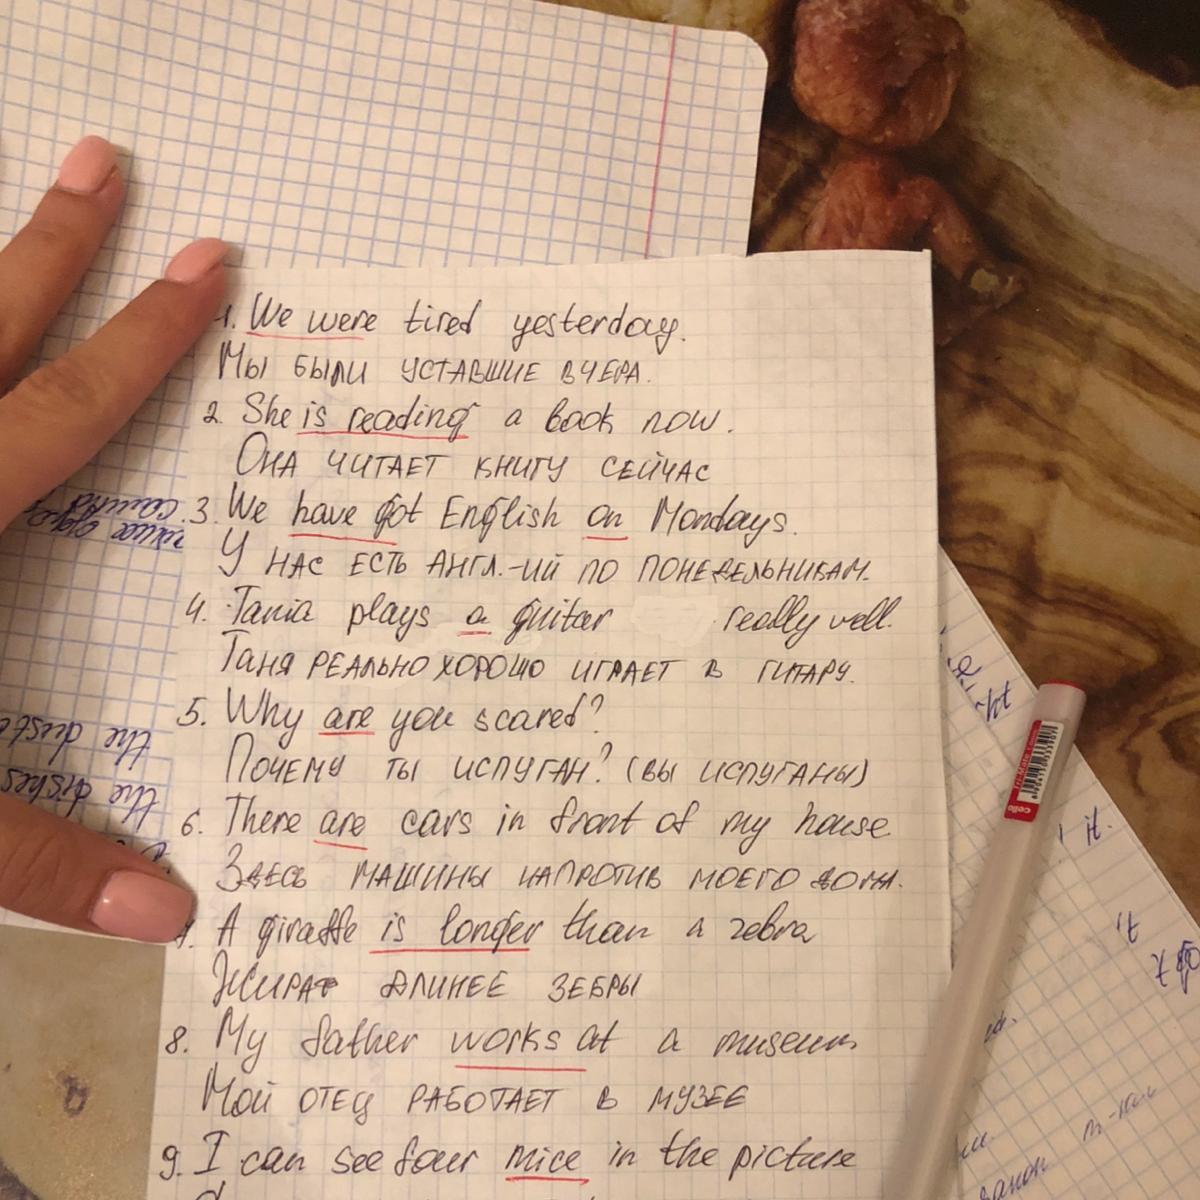 1. We were tired yesterday.
Мы были уставшие вчера.
2. She is reading a book now.
Она читает книгу сейчас
3. We have got English on Mondays.
У нас есть англ.-ий по понедельникам.
4. Tania plays a guitar really well.
Таня реально хорошо играет в гитару.
5. Why are you scared?
Почему ты испуган? (вы испуганы)
6. There are cars in front of my house
Здесь машины напротив моего дома.
7. A giraffe is longer than a zebra
Жираф длинее зебры
8. My father works at a museum
Мой отец работает в музее
9. I can see four mice in the picture
the dishes
cello